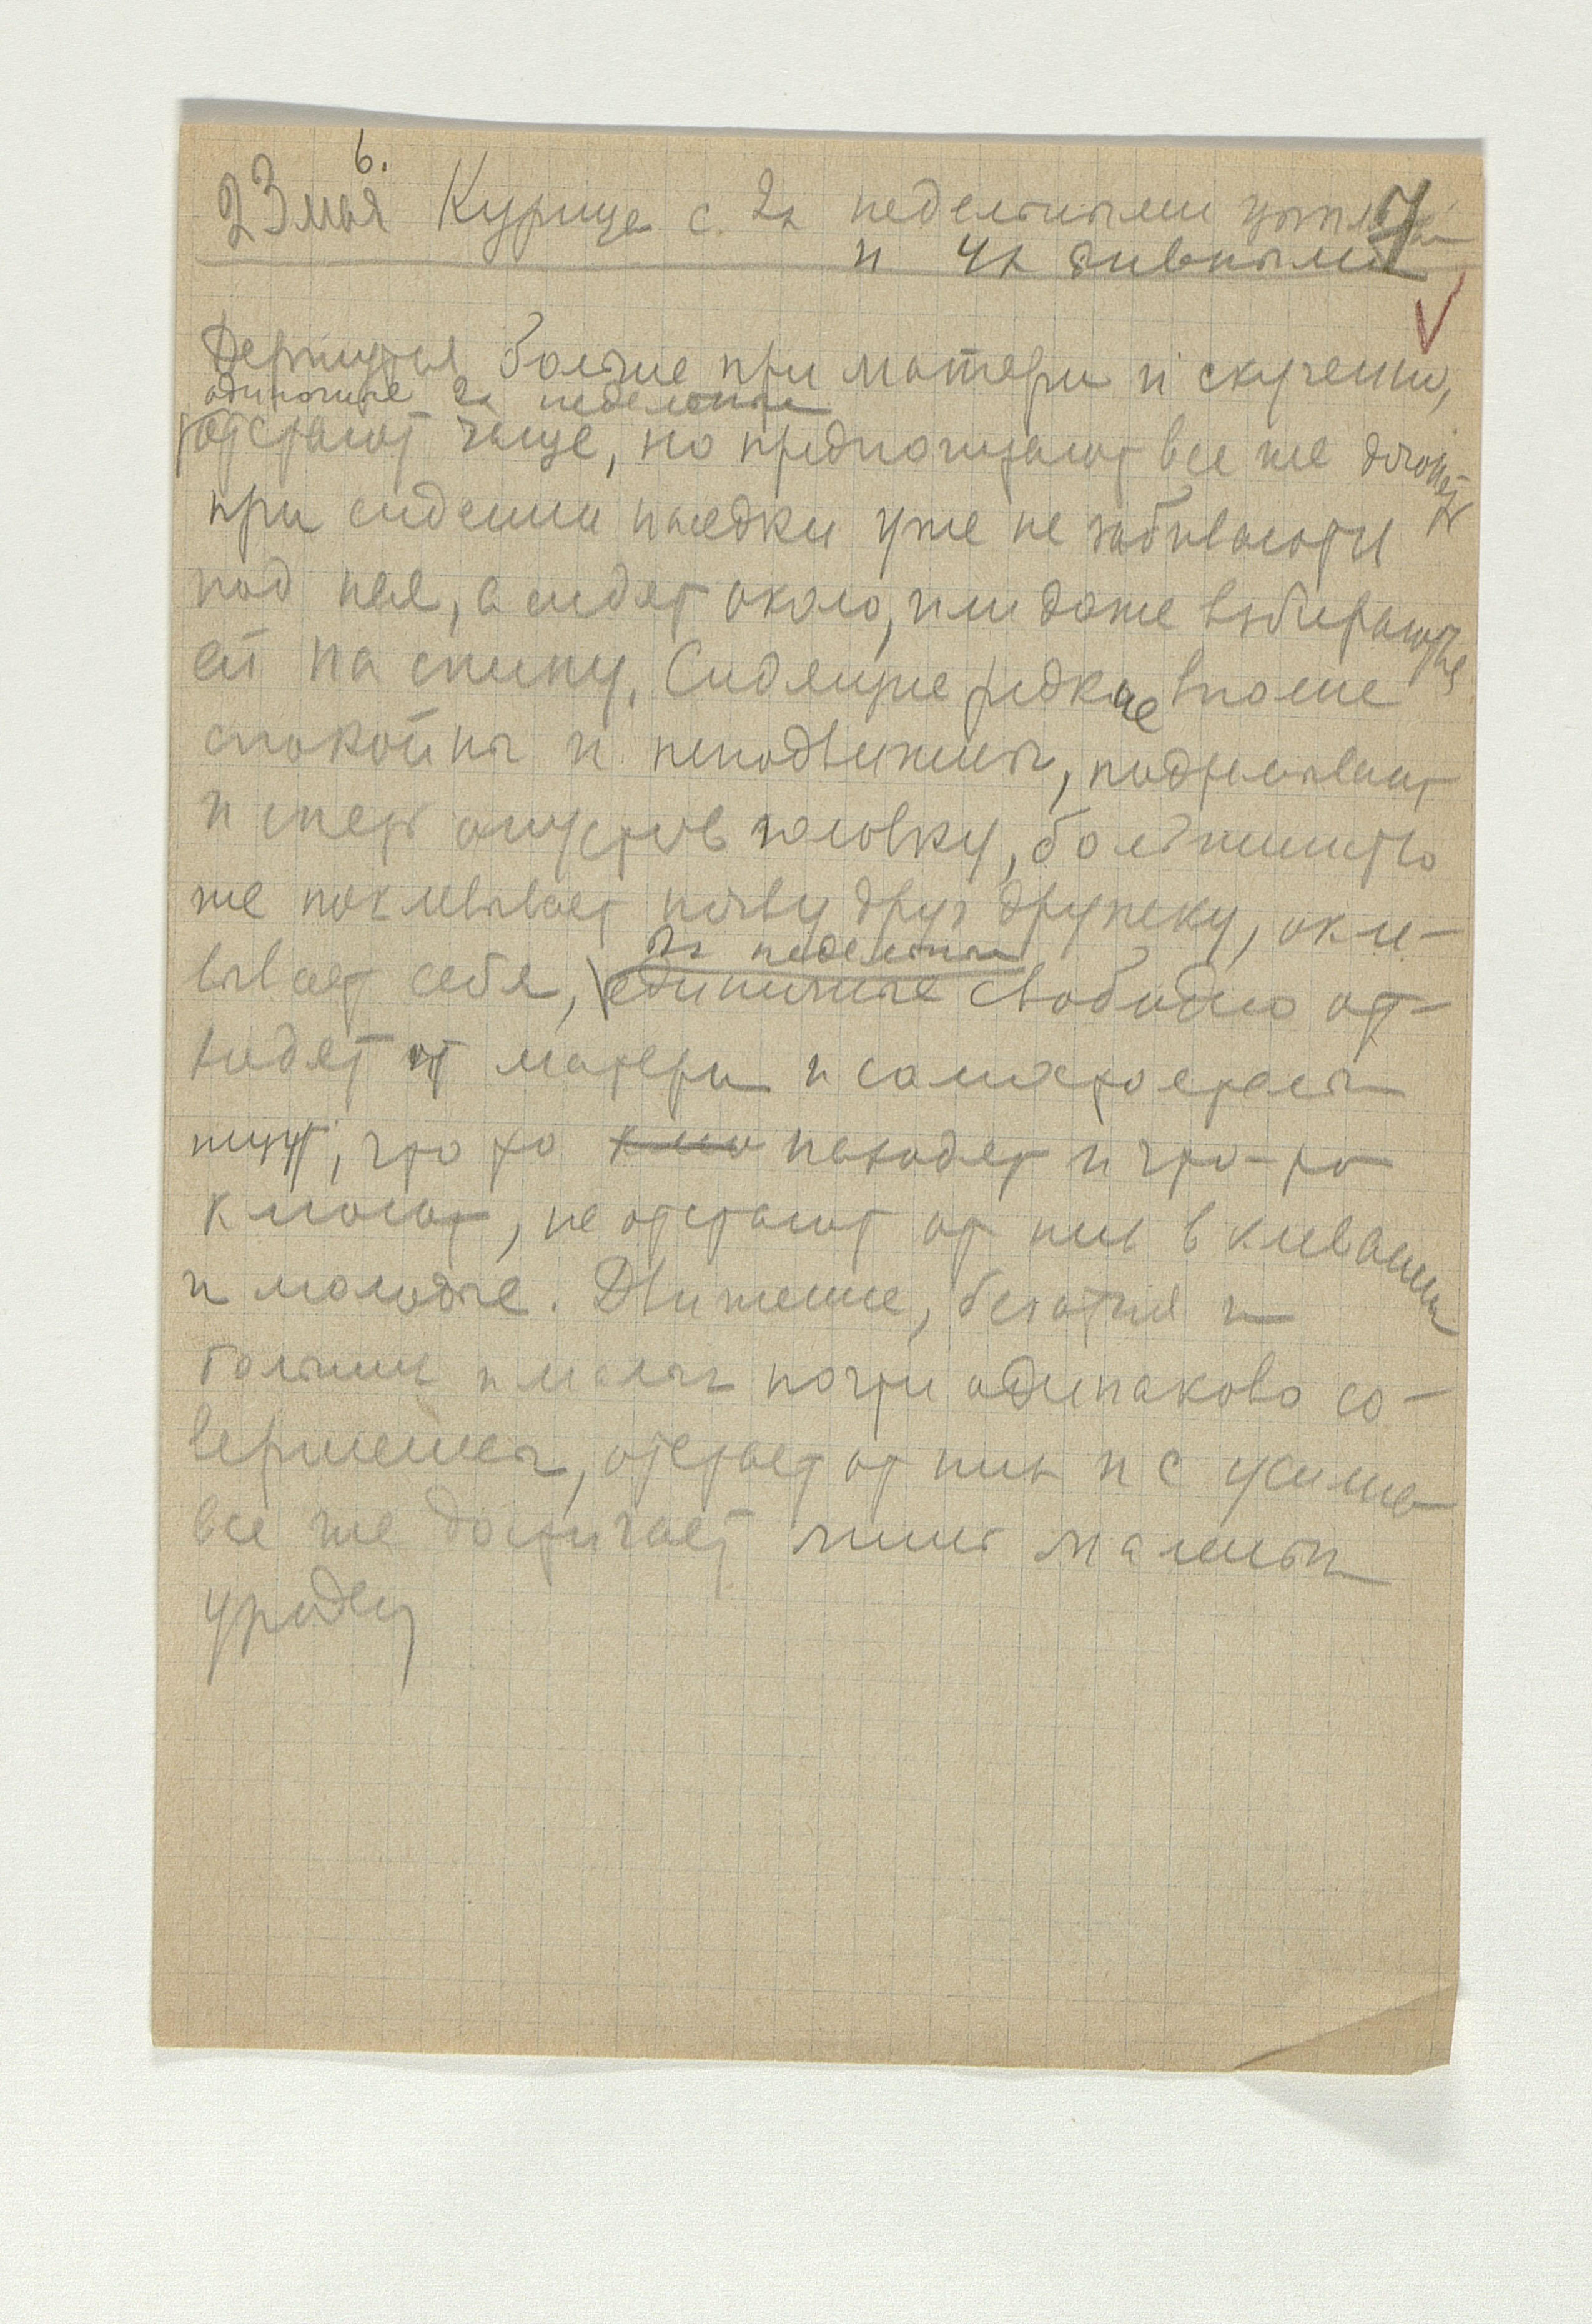 6.
23 мая Курица с 2х недельными цыплятами 7
и 4х дневными
Держутся больше при матери и скученно,
одиночные 2х недельные
отстают чаще, но предпочитают все же догонять
при сидении наседки уже не забиваются
под нее, а сидят около, или даже взбираются
ей на спину. Сидящие редкие вполне
спокойны и неподвижны, подремывают
и спят опустив головку, большинство
же поклевывает почву друг дружку, окле-
вывает себя,
2х недельные
единичные свободно от-
ходят от матери и самостоятельны
ищут, что то клю находят и что-то
клюют, не отстают от них в клевании
и молодые. Движение, беготня и
больших и малых почти одинаково со-
вершенны, отстает от них и с усилием
все же достигает лишь маленький
уродец